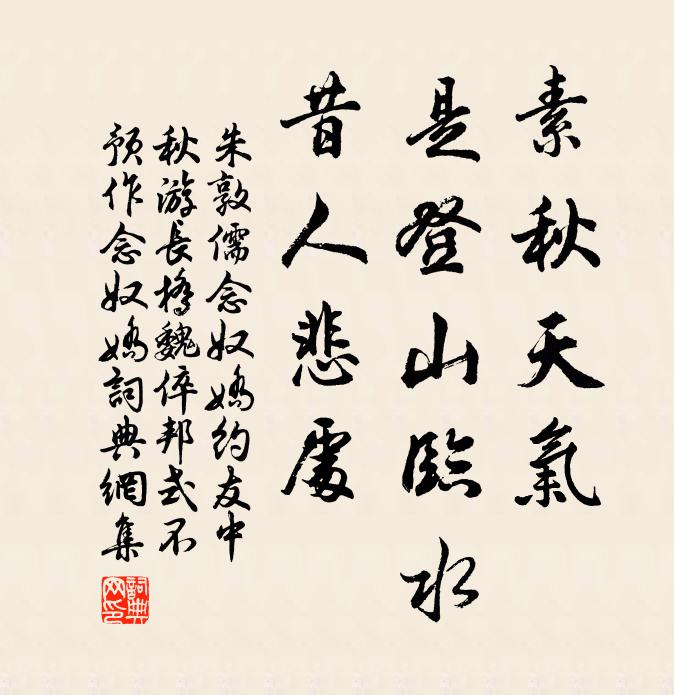 素秋天氣
是登山臨水
昔人悲處
朱敦儒念奴嬌約友中
秋游長橋魏倅邦式不
預作念奴嬌詞典網集
詞典
网印